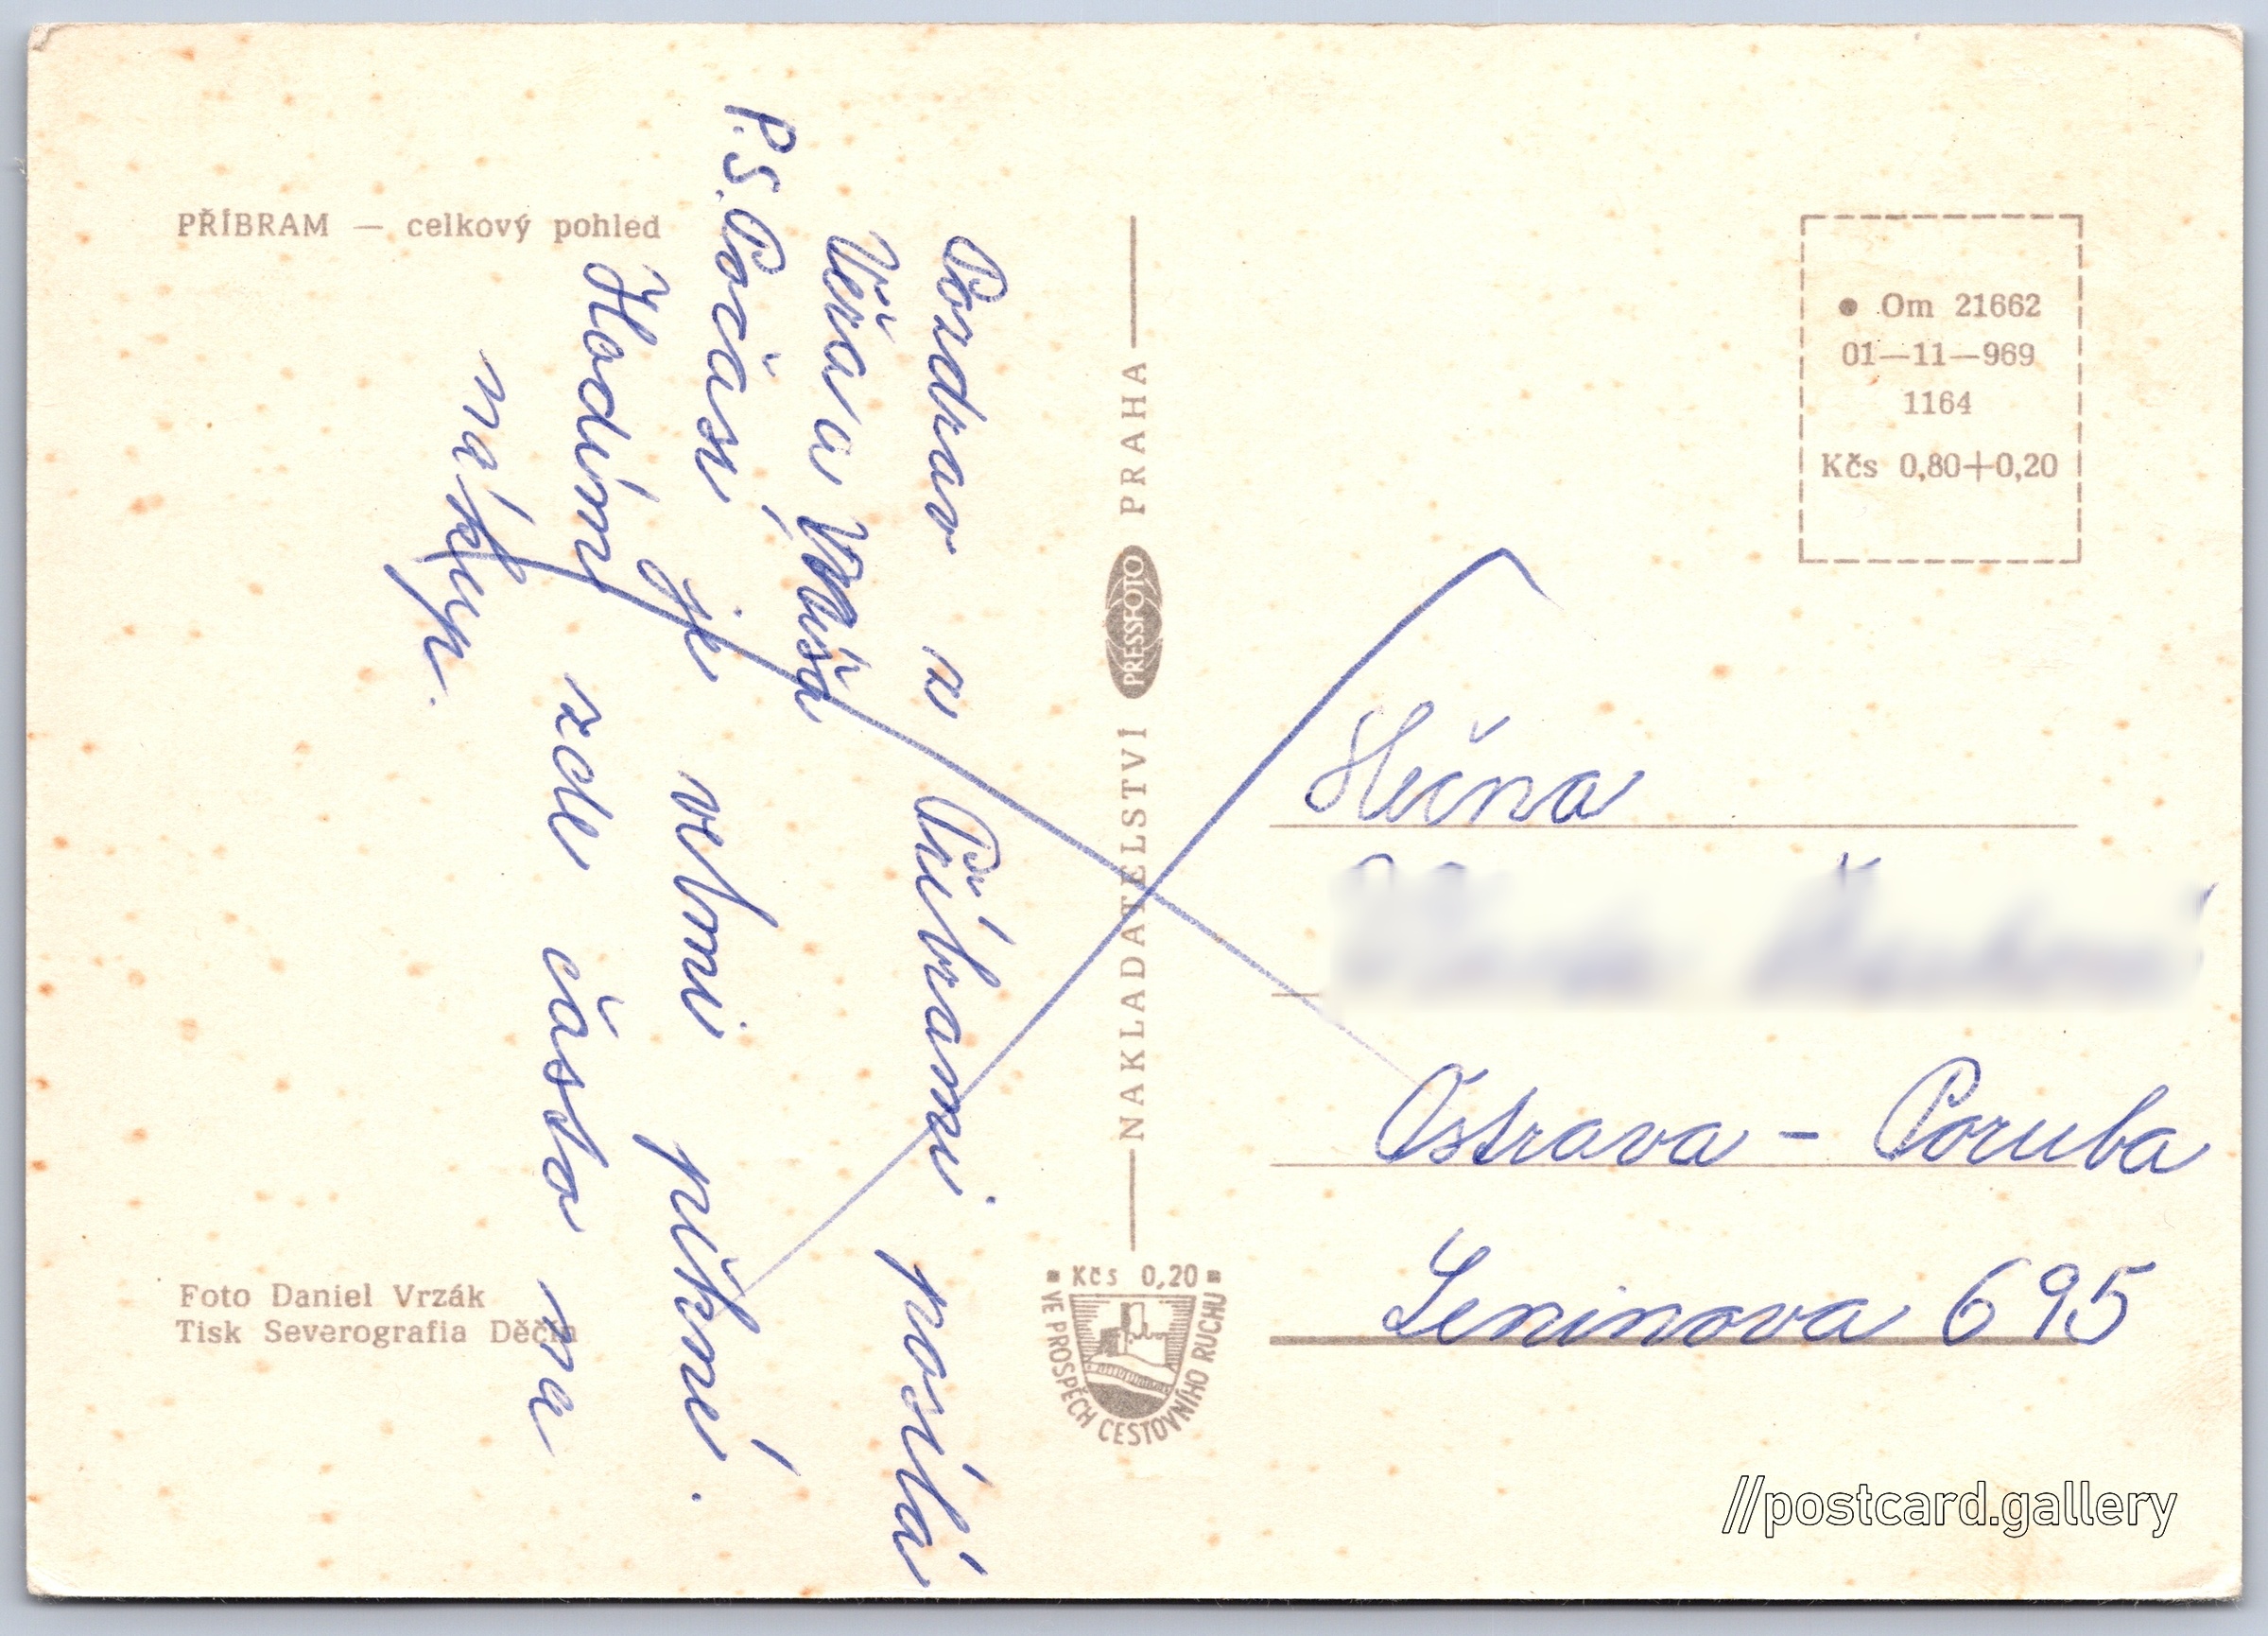 PŘÍBRAM — celkový pohled
Pozdrav z Příbrami posílá
Věra a Máša
P.S. Počasí je velmi pěkné.
Hodíme zde často na
nákup.
Foto Daniel Vrzák
Tisk Severografia Děčín
NAKLADATELSTVÍ PRESSFOTO PRAHA
Kčs 0,20
VE PROSPĚCH CESTOVNÍHO RUCHU
Om 21662
01—11—969
1164
Kčs 0,80+0,20
Slečna
Ostrava - Poruba
Leninova 695
//postcard.gallery